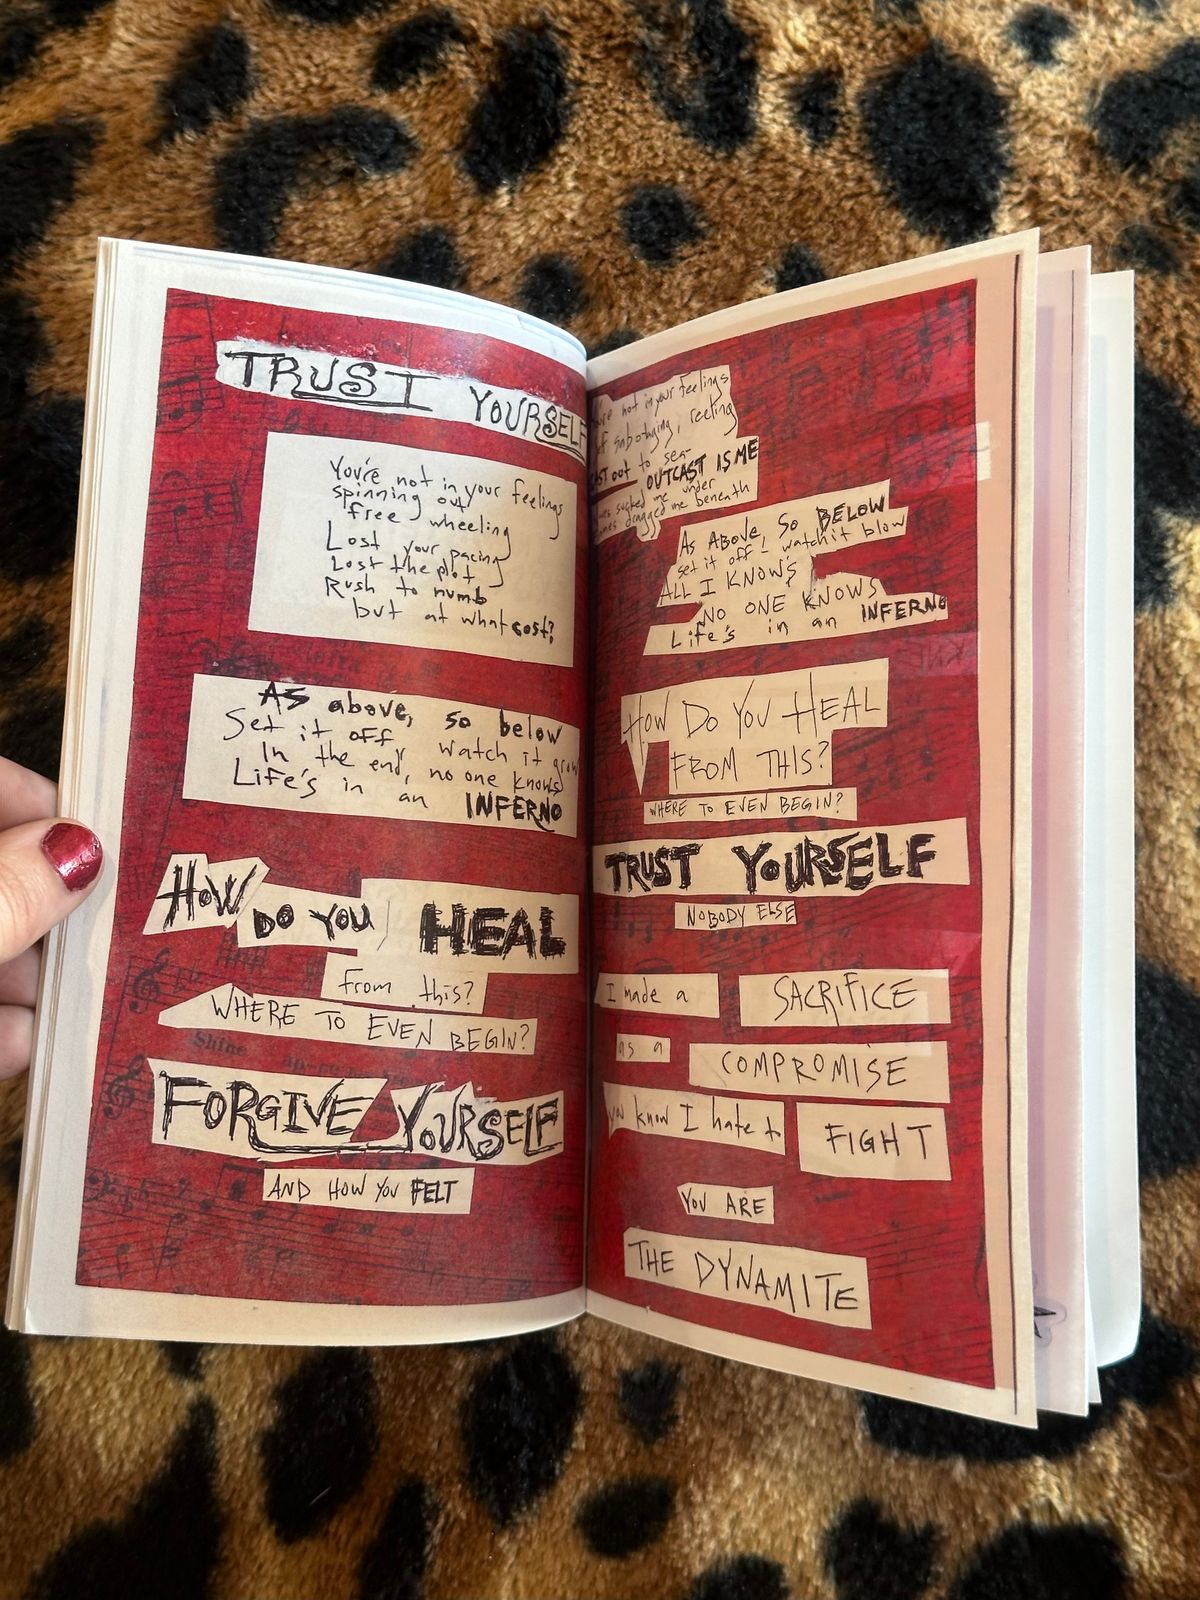 TRUST YOURSELF
You're not in your feelings
spinning out
free wheeling
Lost your pacing
Lost the plot
Rush to numb
but at what cost?
AS above, so below
Set it off, watch it grow
In the end, no one knows
Life's in an INFERNO
HOW DO YOU HEAL
from this?
WHERE TO EVEN BEGIN?
FORGIVE YOURSELF
AND HOW YOU FELT
Shine
not in your feelings
sabotaging, reeling
out to sea
OUTCAST IS ME
sucked me under
dragged me beneath
AS ABOVE, SO BELOW
set it off! watch it blow
ALL I KNOWS
NO ONE KNOWS
Life's in an INFERNO
HOW DO YOU HEAL
FROM THIS?
WHERE TO EVEN BEGIN?
TRUST YOURSELF
NOBODY ELSE
I made a SACRIFICE
as a COMPROMISE
you know I hate to FIGHT
YOU ARE
THE DYNAMITE